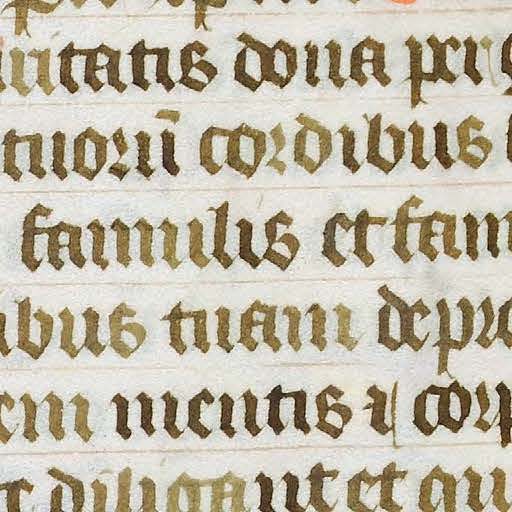 tatis dona
tuorū cordibus
famulis et fam
ibus tuam depre
em mentis ⁊ corp
diligant et qu